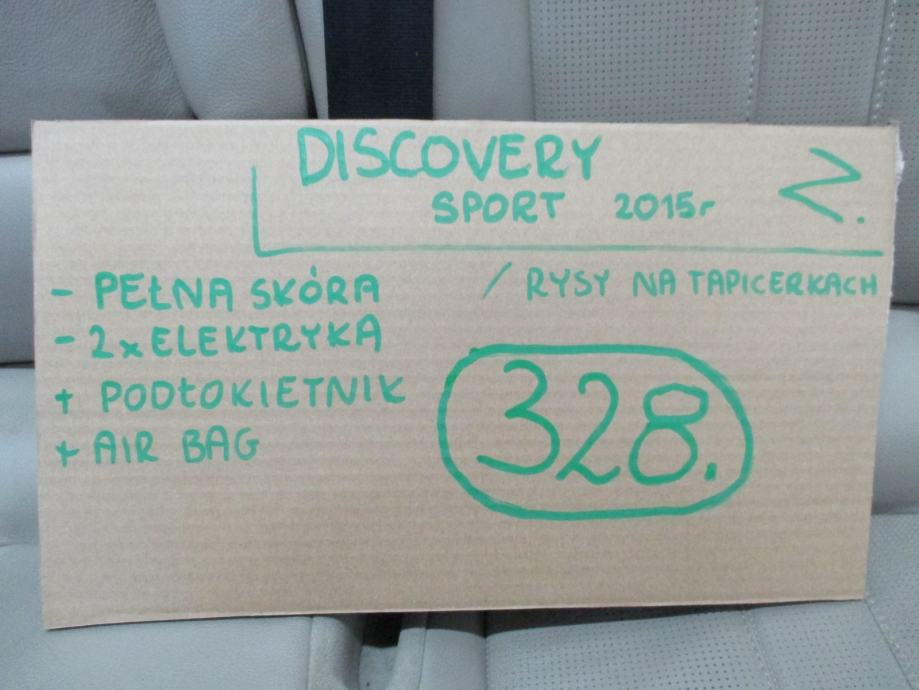 DISCOVERY
SPORT 2015r
Z.
- PEŁNA SKÓRA / RYSY NA TAPICERKACH
- 2x ELEKTRYKA
+ PODŁOKIETNIK
+ AIR BAG
328.